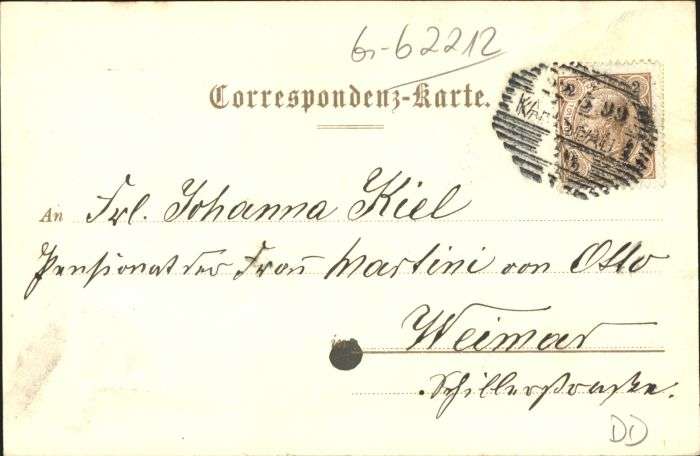 G-62212
Correspondenz-Karte.
2
5 99
An Frl. Johanna Kiel
Pensionat der Frau Martini von Otto
in Weimar
Schillerstraße.
DD